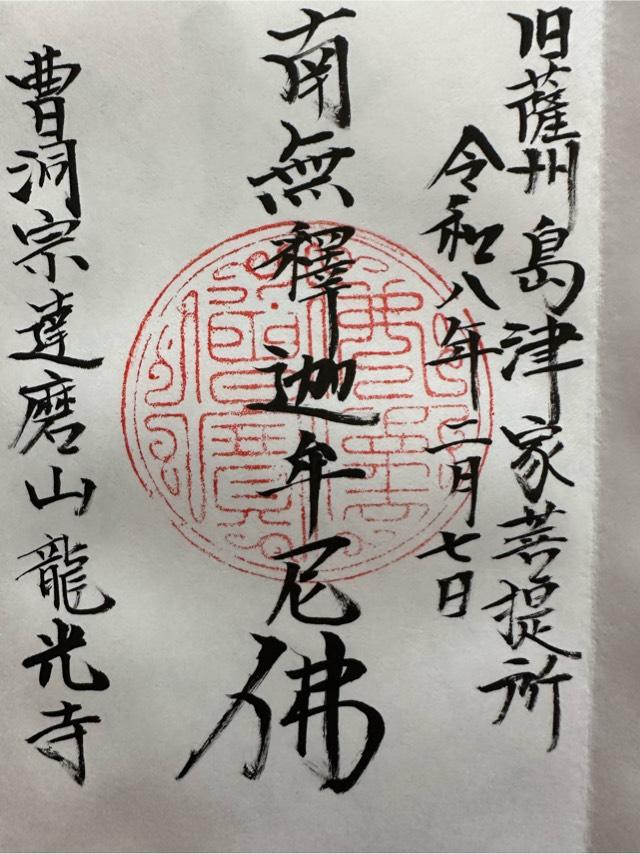 旧薩州島津家菩提所
令和八年二月七日
南無釋迦牟尼佛
曹洞宗達磨山龍光寺